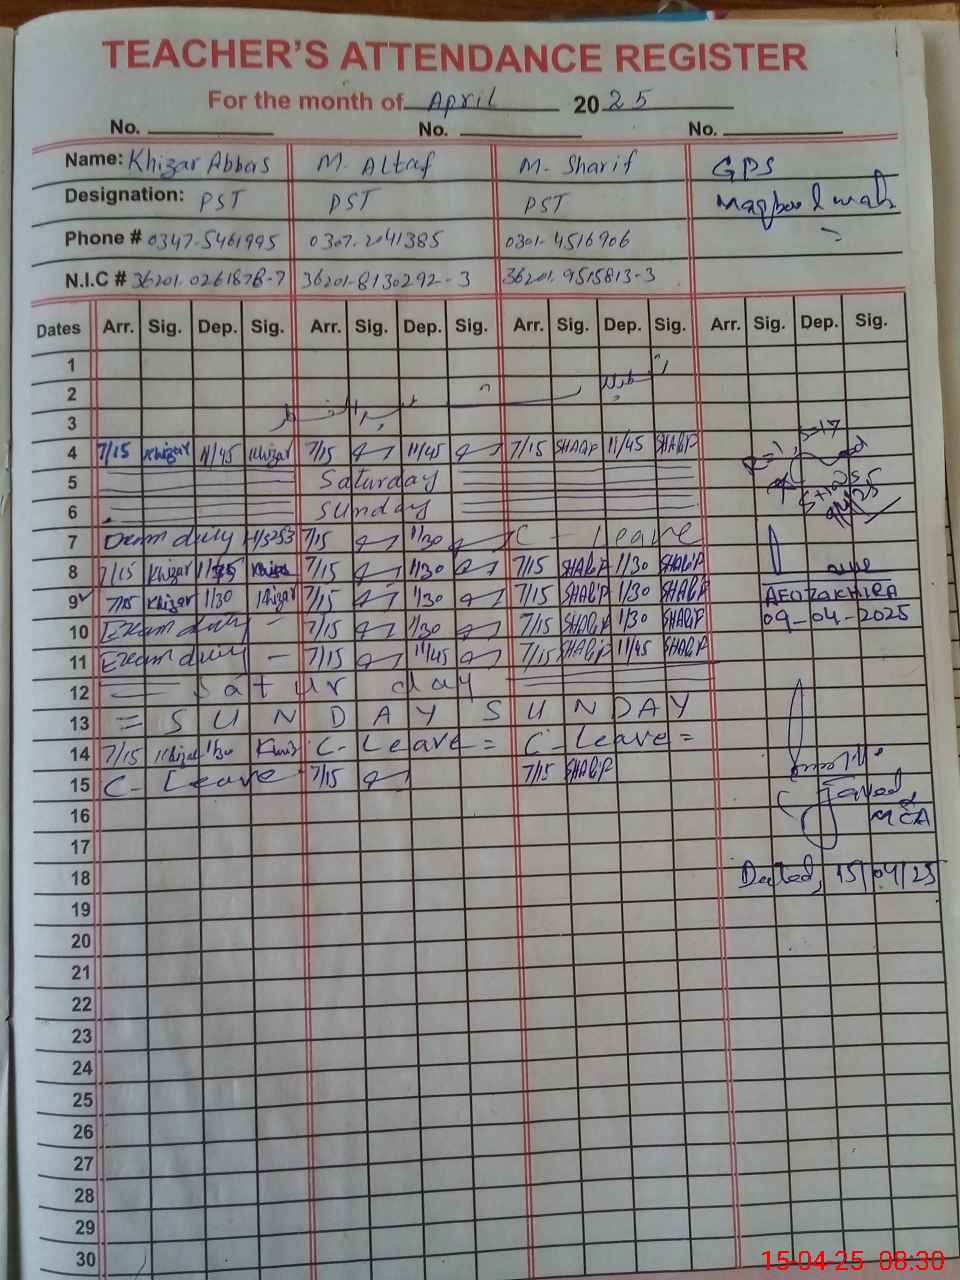 TEACHER'S ATTENDANCE REGISTER
For the month of April 2025
No. No. No.
Name: Khizar Abbas M. Altaf M. Sharif GPS
Designation: PST PST PST Maqbool wah
Phone # 0347-5461995 0307-2041385 0301-4516906
N.I.C # 36201-0261878-7 36201-8130292-3 36201-9515813-3
Dates Arr. Sig. Dep. Sig. Arr. Sig. Dep. Sig. Arr. Sig. Dep. Sig. Arr. Sig. Dep. Sig.
1
2
3
4 7/15 Khizar 11/45 Khizar 7/15 11/45 7/15 SHARIF 11/45 SHARIF
5 Saturday
6 Sunday
9/4/25
7 Exam duty 7/15 1/30 C - Leave
8 7/15 Khizar Khizar 7/15 1/30 7/15 SHARIF 1/30 SHARIF
9 7/15 Khizar 1/30 Khizar 7/15 1/30 7/15 SHARIF 1/30 SHARIF AEO ZAKHIRA
10 Exam duty - 7/15 1/30 7/15 SHARIF 1/30 SHARIF 09-04-2025
11 Exam duty - 7/15 11/45 7/15 SHARIF 11/45 SHARIF
12 Saturday
13 = SUNDAY SUNDAY
14 7/15 Khizar 1/30 Khizar C-Leave = C-Leave =
15 C-Leave 7/15 7/15 SHARIF
Javed
16 MEA
17
18 Dated, 15/04/25
19
20
21
22
23
24
25
26
27
28
29
30
15-04-25 08:30